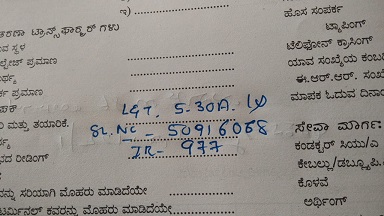 ಇ)
ಹೊಸ ಸಂಪರ್ಕ
ಟ್ರಾನ್ಸ್‌ಫಾರ್ಮರ್
ಟ್ಯಾಪಿಂಗ್
ವ ಸ್ಥಳ
ಟೆಲಿಫೋನ್ ಕ್ರಾಸಿಂಗ್
ಪ್ರಮಾಣ
ಯಾವ ಸಂಖ್ಯೆಯ ಕಂಬ
ಪ್ರಮಾಣ
ಈ.ಆರ್.ಆರ್. ಸಂ
L&T. 5-30A.
ಮಾಪಕ ಓದುವ ದಿನಾ
ಮತ್ತು ತಯಾರಿಕೆ.
SL.NO - 50916068
ಸೇವಾ ಮಾರ್ಗ:
IR- 977
ಕಂಡಕ್ಟರ್ ಸಿಯು/ಎ
ರೀಡಿಂಗ್
ಕೇಬಲ್ಲು/ಡಬ್ಲ್ಯೂಪಿ.
ಕೊಳವೆ
ವನ್ನು ಸರಿಯಾಗಿ ಮೊಹರು ಮಾಡಿದೆಯೇ
ಅರ್ಥಿಂಗ್
ಟರ್ಮಿನಲ್ ಕವರನ್ನು ಮೊಹರು ಮಾಡಿದೆಯೇ